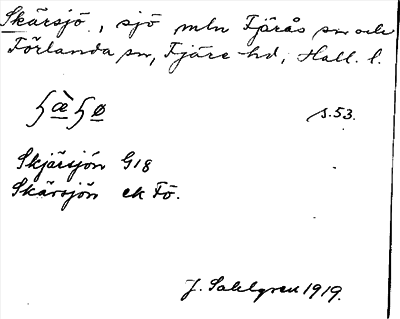 Skärsjö, sjö mln Fjärås sn och
Förlanda sn, Fjäre hd, Hall. l.
ʃæ̀ʃø s.53.
Skjärsjön G18
Skärsjön ek Fö.
J. Sahlgren 1919.